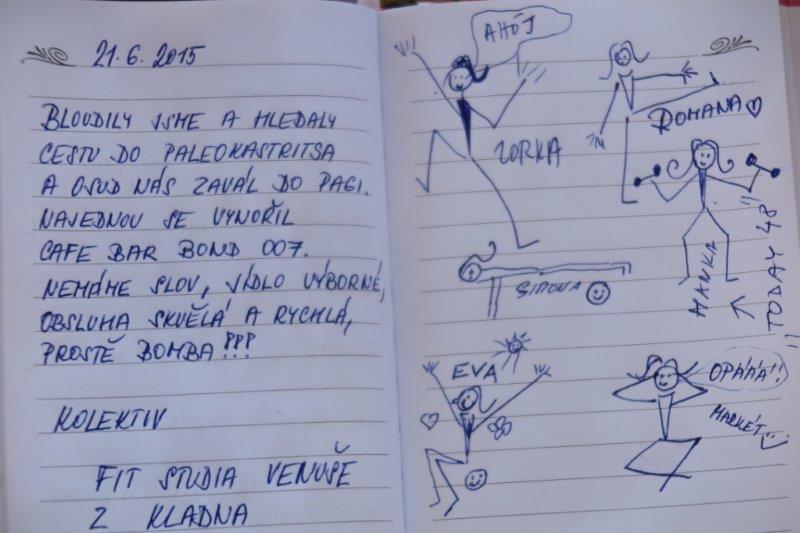 21.6.2015
BLOUDILY JSME A HLEDALY
CESTU DO PALEOKASTRITSA
A OSUD NÁS ZAVÁL DO PAGI.
NAJEDNOU SE VYNOŘIL
CAFE BAR BOND 007.
NEMÁME SLOV, JÍDLO VÝBORNÉ,
OBSLUHA SKVĚLÁ A RYCHLÁ,
PROSTĚ BOMBA!!!
KOLEKTIV
FIT STUDIA VENUŠE
Z KLADNA
AHOJ
ZORKA
ROMANA
HANKA
TODAY 48
SIMONA
EVA
OPÁÁÁ!!
MARKÉT